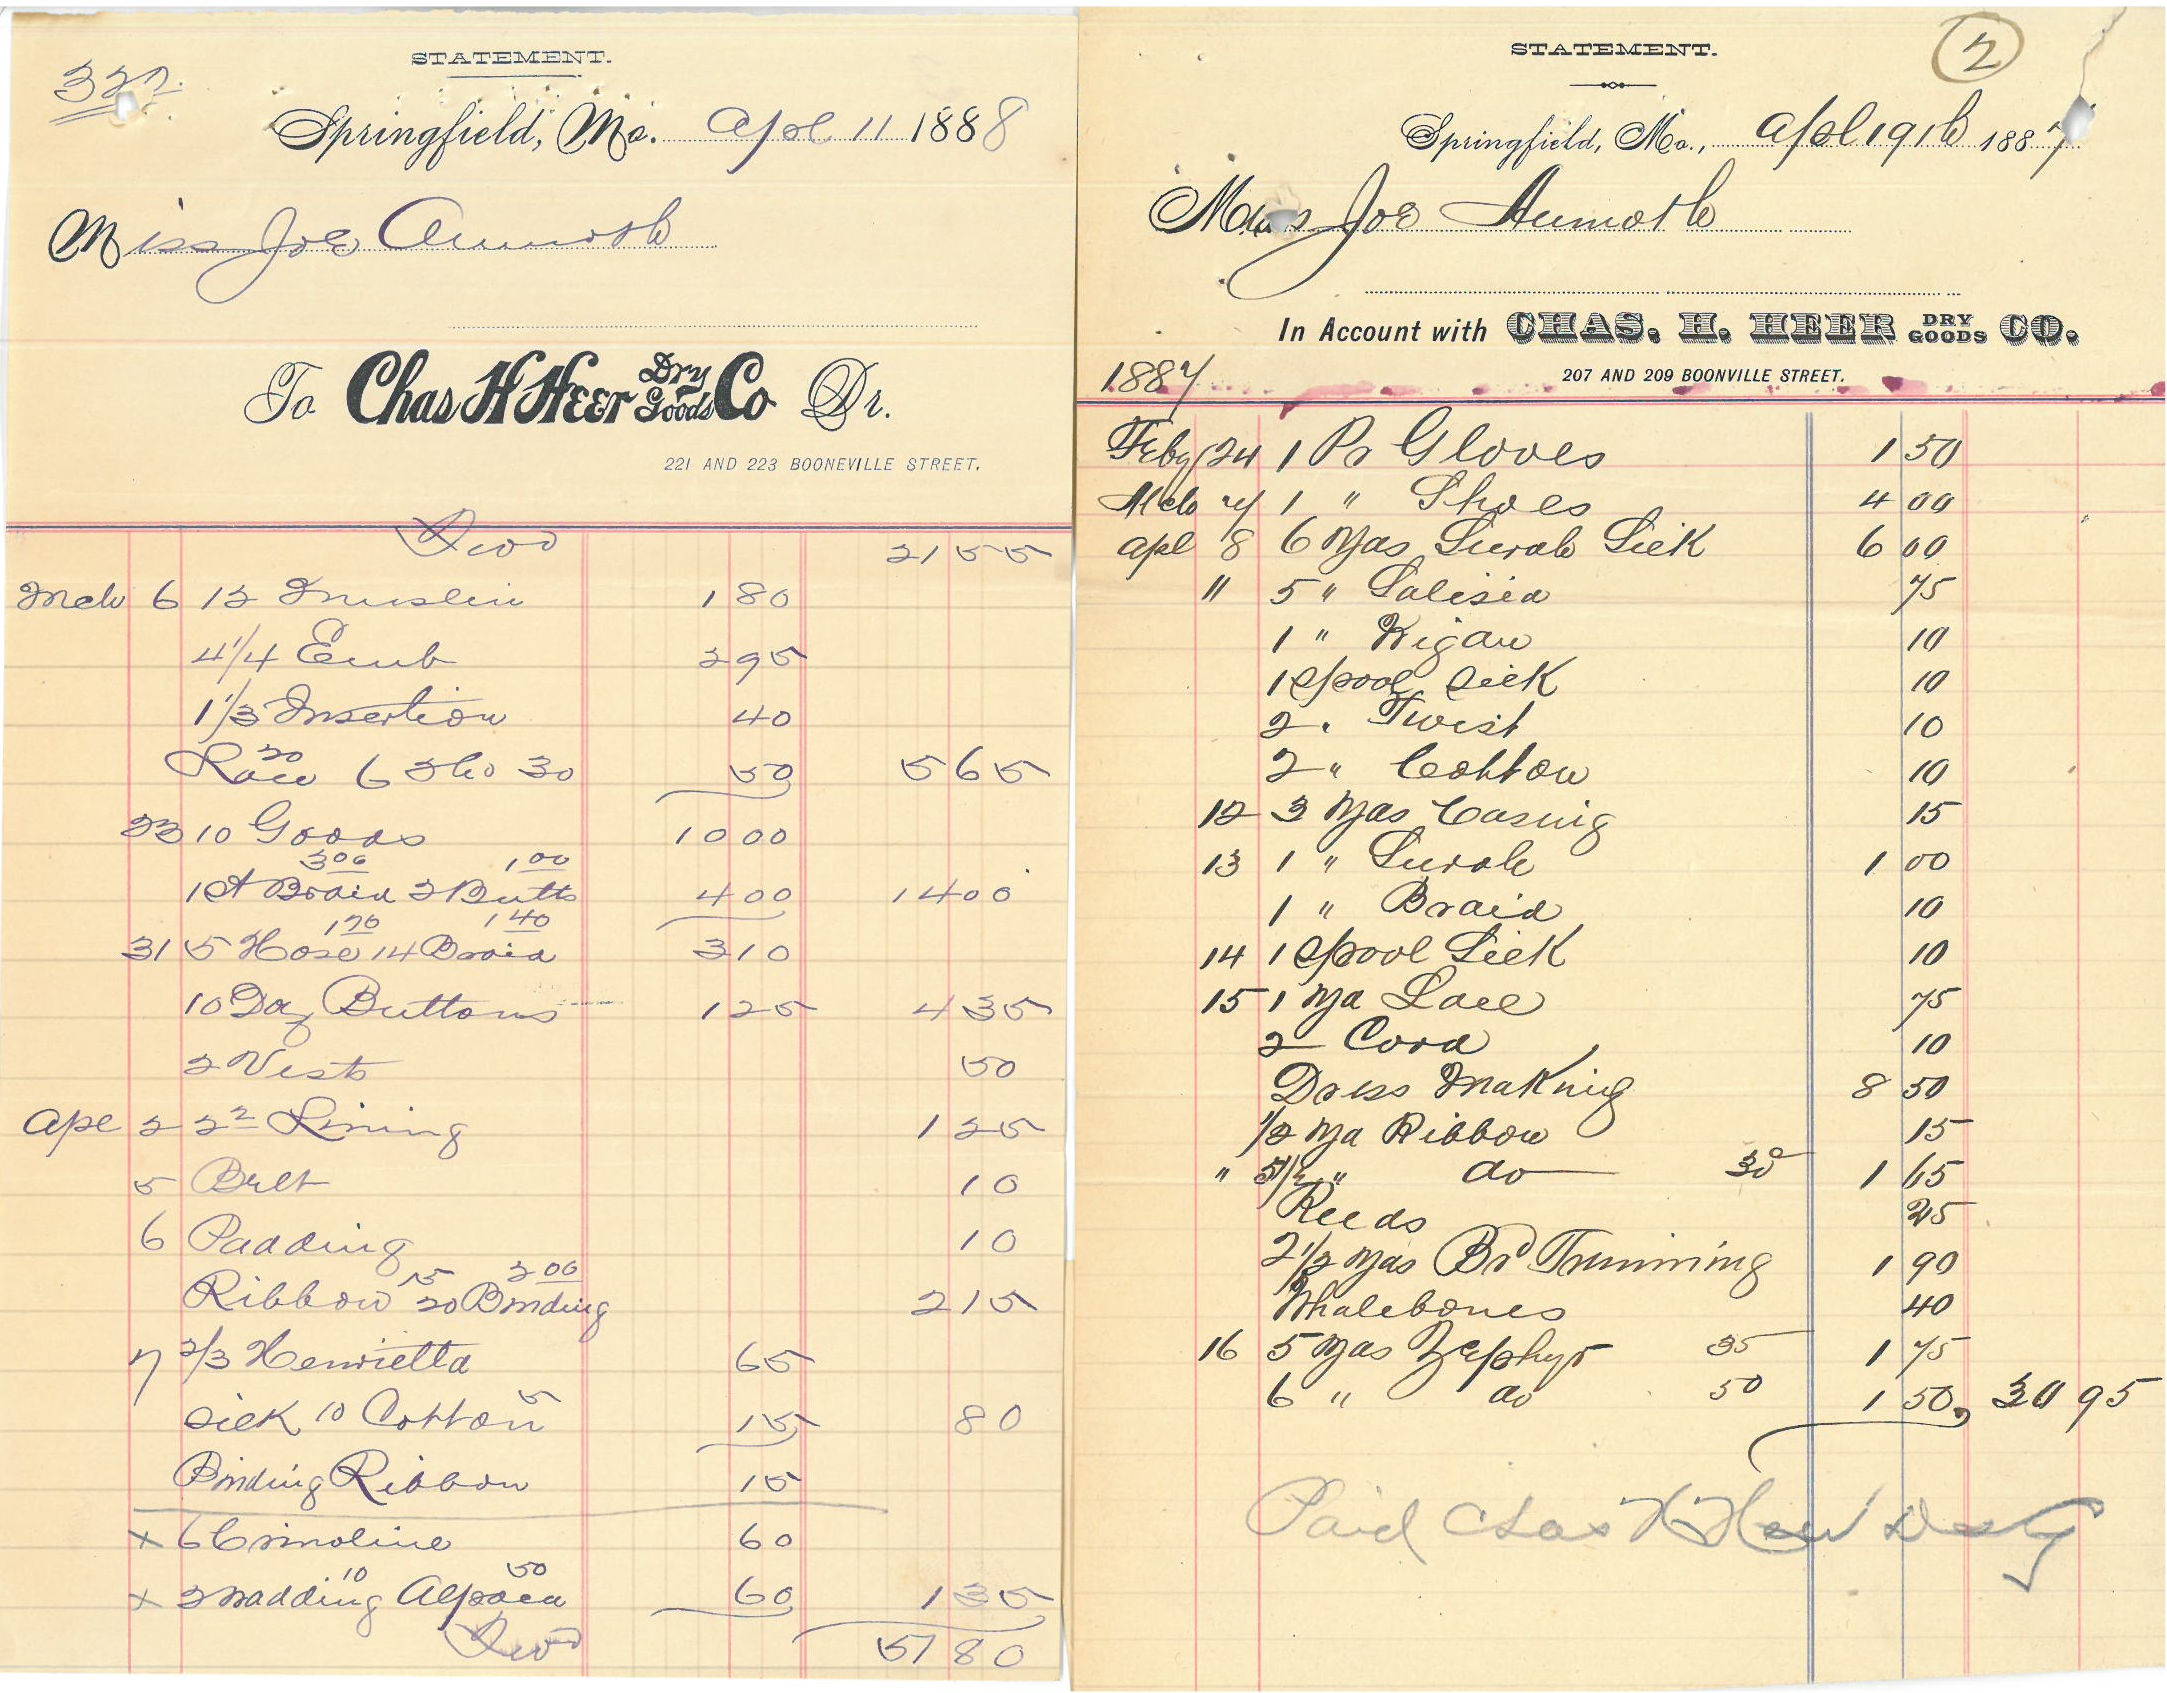 327.
STATEMENT.
Springfield, Mo. Apl 11 1888
Miss Joe Aumoth
To Chas H Heer Dry Goods Co Dr.
221 AND 223 BOONEVILLE STREET.
Fwd 21 55
Mch 6 12 Muslin 1 80
4 1/4 Emb 2 95
1 1/3 Insertion 40
Lace 20 6 Tho 30 50 5 65
23 10 Goods 10 00
3 00 1 00
1 St Braid 2 Butts 4 00 14 00
1 70 1 40
31 5 Hose 14 Braid 3 10
10 Doz Buttons 1 25 4 35
2 Vests 50
Apl 2 2 2 Lining 1 25
5 Belt 10
6 Padding 10
15 2 00
Ribbon 20 Binding 2 15
7 2/3 Henrietta 65
Silk 10 Cotton 5 15 80
Binding Ribbon 15
x 6 Crinoline 60
x 2 Wadding 10 Alpaca 50 60 1 35
Fwd 51 80
STATEMENT.
2
Springfield, Mo., Apl 19th 1887
Miss Joe Aumoth
In Account with CHAS. H. HEER DRY GOODS CO.
207 AND 209 BOONVILLE STREET.
1887
Feby 24 1 Pr Gloves 1 50
Mch 7 1 " Shoes 4 00
Apl 8 6 Yds Surah Silk 6 00
" 5 " Salisia 75
1 " Wigan 10
1 Spool Silk 10
2 " Twist 10
2 " Cotton 10
12 3 Yds Casing 15
13 1 " Surah 1 00
1 " Braid 10
14 1 Spool Silk 10
15 1 Yd Lace 75
2 Cord 10
Dress Making 8 50
1/2 Yd Ribbon 15
" 5 1/2 " do 30 1 65
Reeds 25
2 1/2 Yds Bd Trimming 1 90
Whalebones 40
16 5 Yds Zephyr 35 1 75
6 " do 50 1 50 30 95
Paid Chas H Heer D G